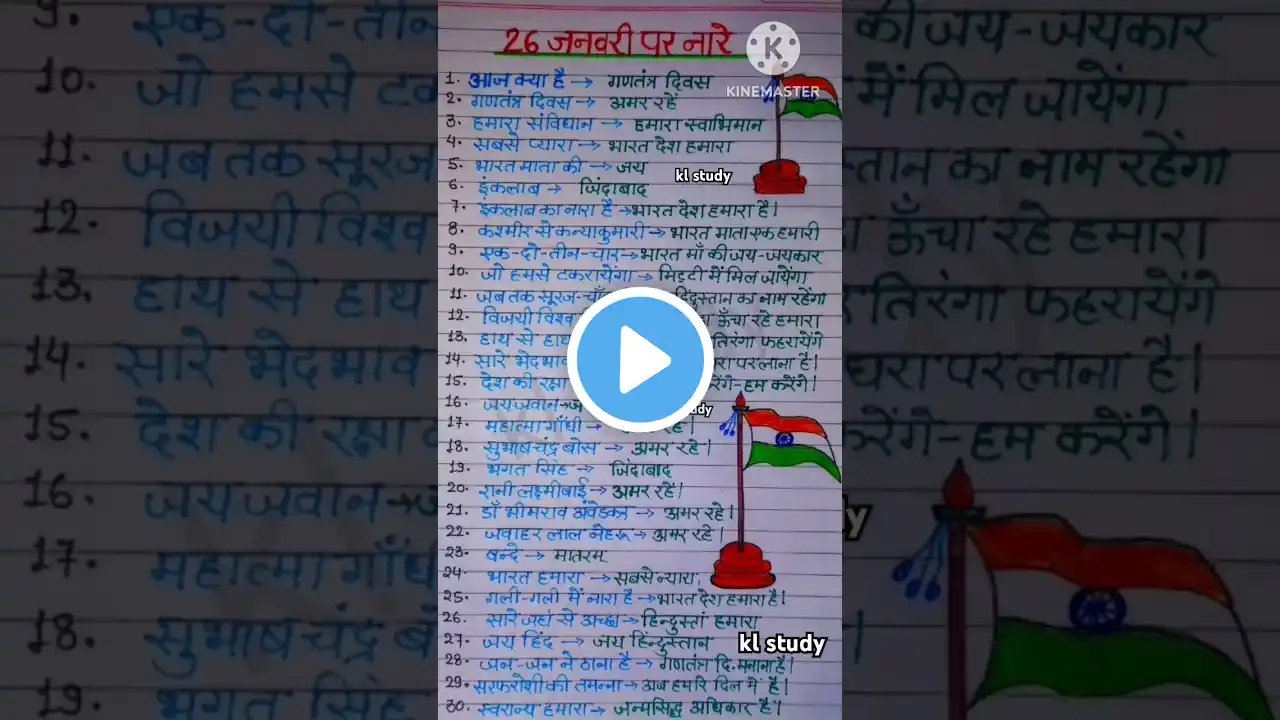 26 जनवरी पर नारे
KINEMASTER
1. आज क्या है → गणतंत्र दिवस
2. गणतंत्र दिवस → अमर रहे
3. हमारा संविधान → हमारा स्वाभिमान
4. सबसे प्यारा → भारत देश हमारा
5. भारत माता की → जय
kl study
6. इंकलाब → जिंदाबाद
7. इंकलाब का नारा है → भारत देश हमारा है।
8. कश्मीर से कन्याकुमारी → भारत माता एक हमारी
9. एक-दो-तीन-चार → भारत माँ की जय-जयकार
10. जो हमसे टकरायेगा → मिट्टी में मिल जायेगा
11. जब तक सूरज-चाँ हिंदुस्तान का नाम रहेगा
12. विजयी विश्व ऊँचा रहे हमारा
13. हाथ से हाथ तिरंगा फहरायेंगे
14. सारे भेदभाव धरा पर लाना है।
15. देश की रक्षा करेंगे-हम करेंगे।
16. जय जवान →
17. महात्मा गाँधी →
18. सुभाष चंद्र बोस → अमर रहे।
19. भगत सिंह → जिंदाबाद
20. रानी लक्ष्मीबाई → अमर रहे।
21. डॉ भीमराव अंबेडकर → अमर रहे।
22. जवाहर लाल नेहरू → अमर रहे।
23. बन्दे → मातरम्
24. भारत हमारा → सबसे न्यारा,
25. गली-गली में नारा है → भारत देश हमारा है।
26. सारे जहाँ से अच्छा → हिन्दुस्तां हमारा
27. जय हिंद → जय हिन्दुस्तान
kl study
28. जन-जन ने ठाना है → गणतंत्र दि. मनाना है।
29. सरफरोशी की तमन्ना → अब हमारे दिल में है।
30. स्वराज्य हमारा → जन्मसिद्ध अधिकार है।